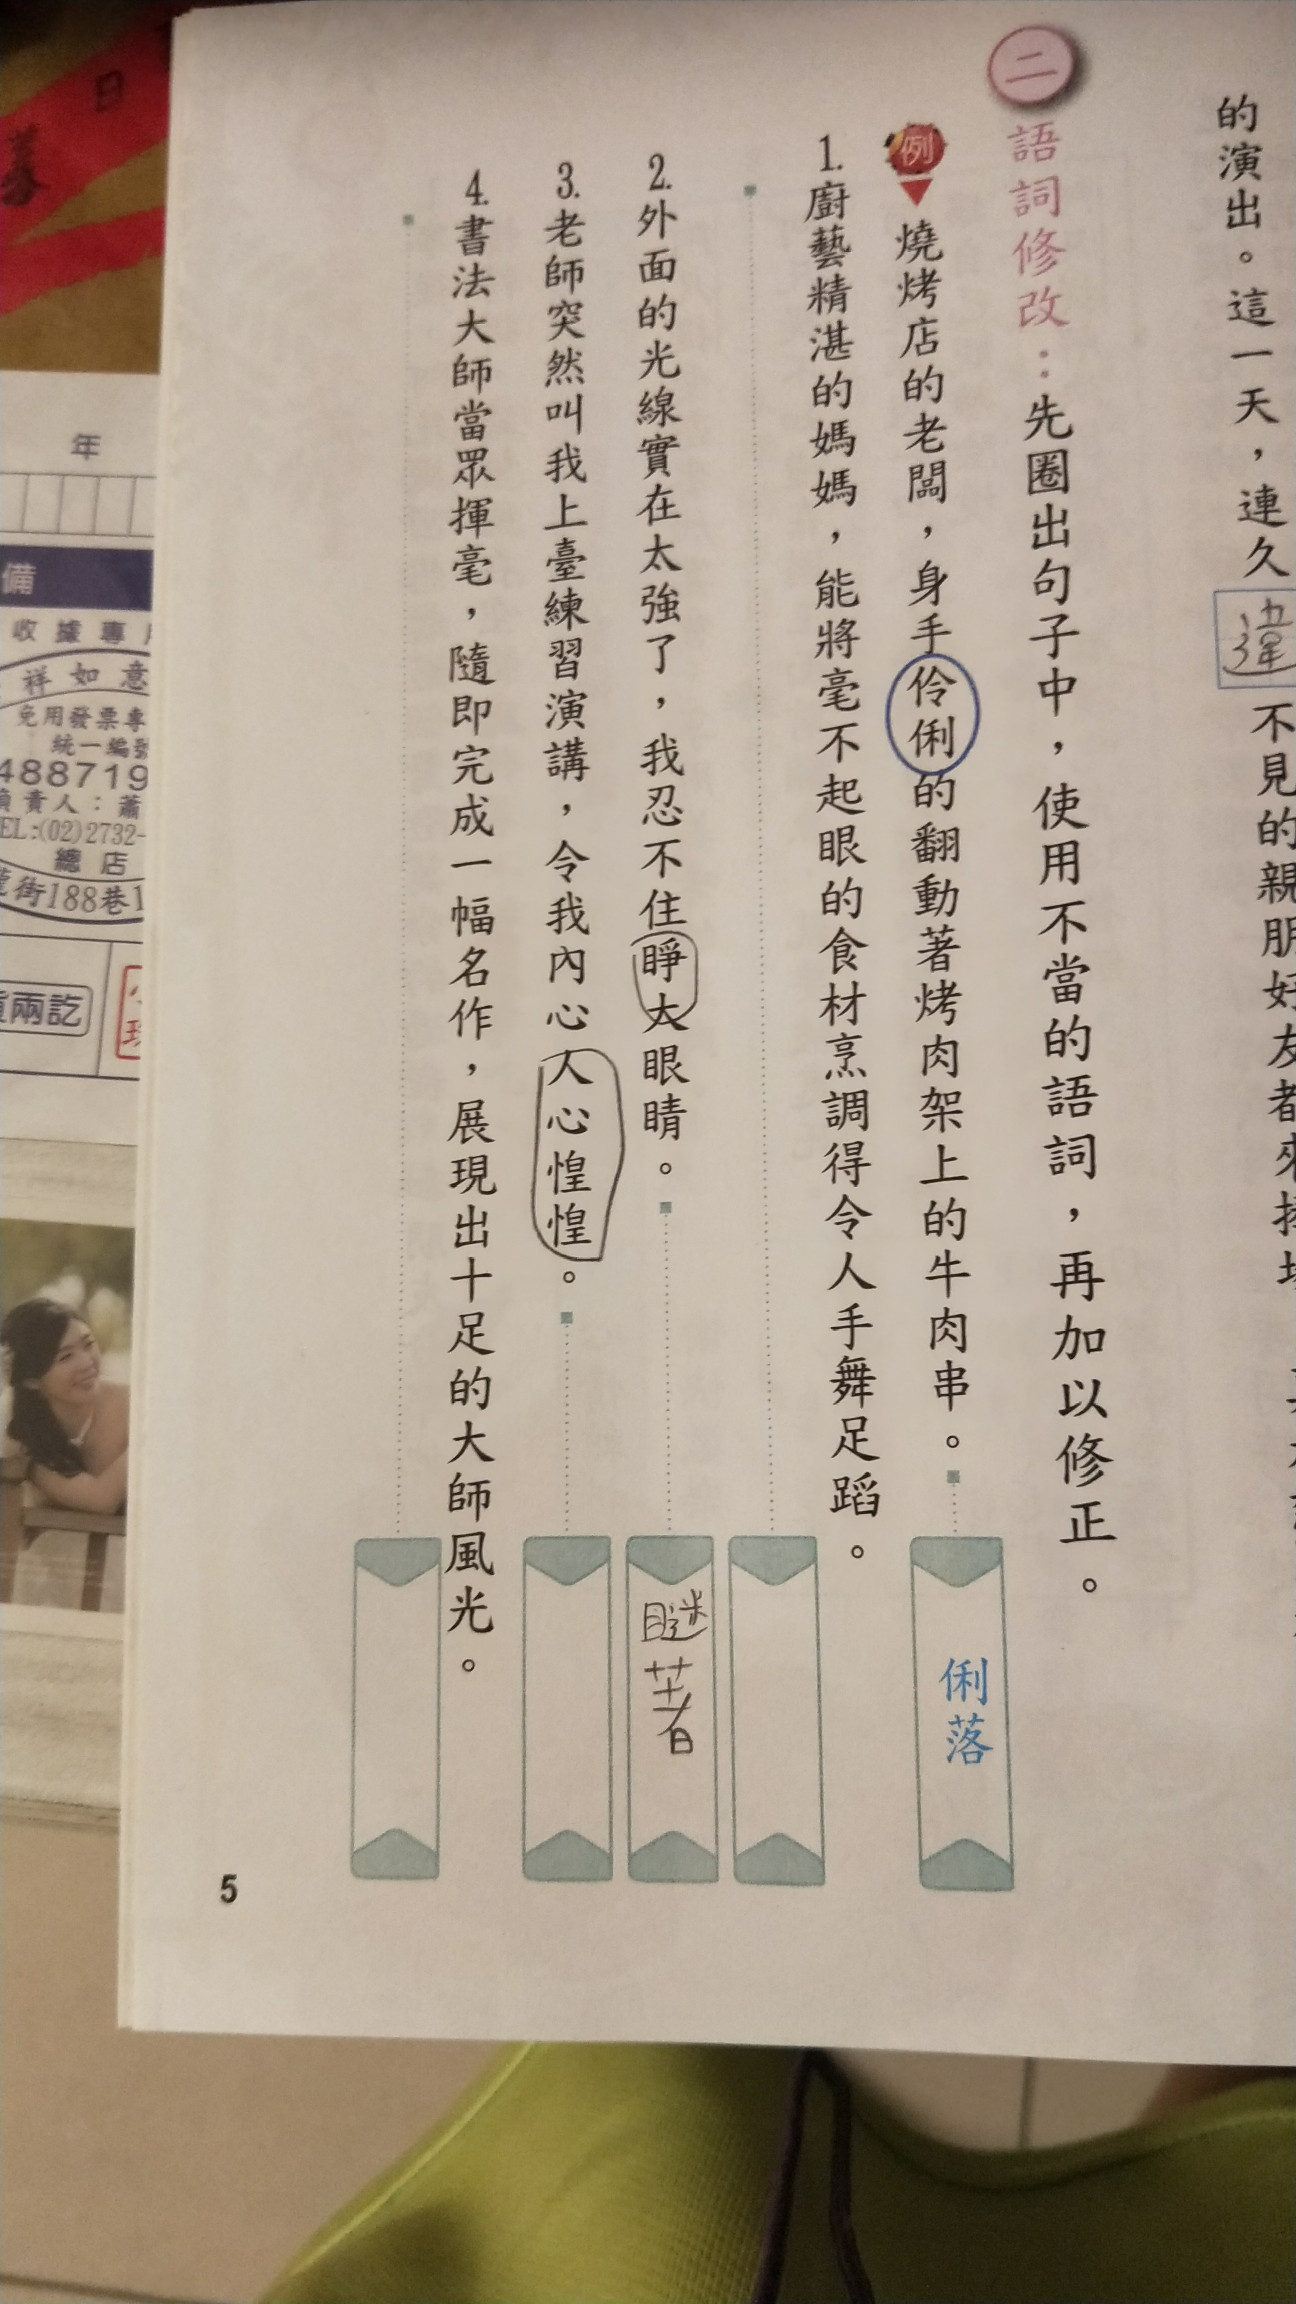 的演出。這一天，連久違不見的親朋好友都來捧場
二 語詞修改：先圈出句子中，使用不當的語詞，再加以修正。
例 燒烤店的老闆，身手伶俐的翻動著烤肉架上的牛肉串。
俐落
1. 廚藝精湛的媽媽，能將毫不起眼的食材烹調得令人手舞足蹈。
2. 外面的光線實在太強了，我忍不住睜大眼睛。
瞇著
3. 老師突然叫我上臺練習演講，令我內心人心惶惶。
4. 書法大師當眾揮毫，隨即完成一幅名作，展現出十足的大師風光。
5
日
年
備
收據專
祥如意
免用發票專
統一編號
488719
負責人：蕭
EL:(02)2732-
總店
街188巷1
兩訖